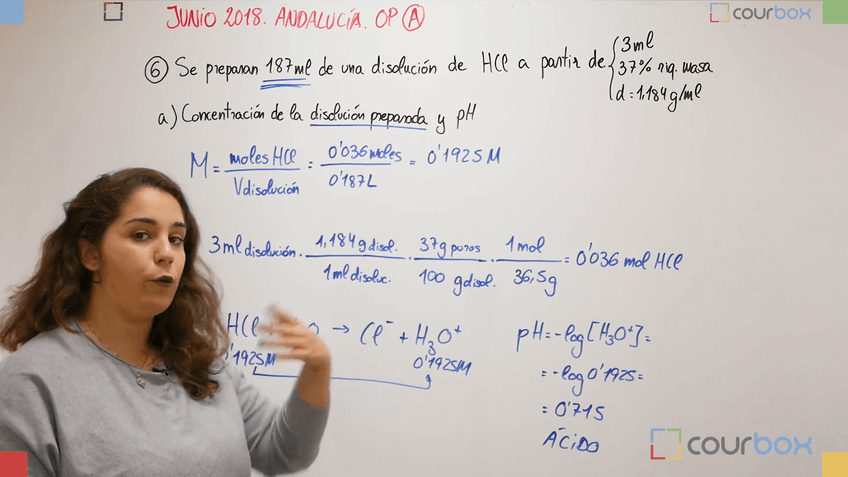 JUNIO 2018. ANDALUCÍA. OP A
courbox
6 Se preparan 187ml de una disolución de HCl a partir de
3ml
37% riq. masa
d = 1,184 g/ml
a) Concentración de la disolución preparada y pH
M = moles HCl / V disolución = 0'036 moles / 0'187L = 0'1925 M
3 ml disolución · 1,184 g disol. / 1 ml disoluc. · 37 g puros / 100 g disol. · 1 mol / 36,5 g = 0'036 mol HCl
HCl + O → Cl⁻ + H₃O⁺
0'1925M 0'1925M
pH = -log [H₃O⁺] =
= -log 0'1925 =
= 0'715
ÁCIDO
courbox